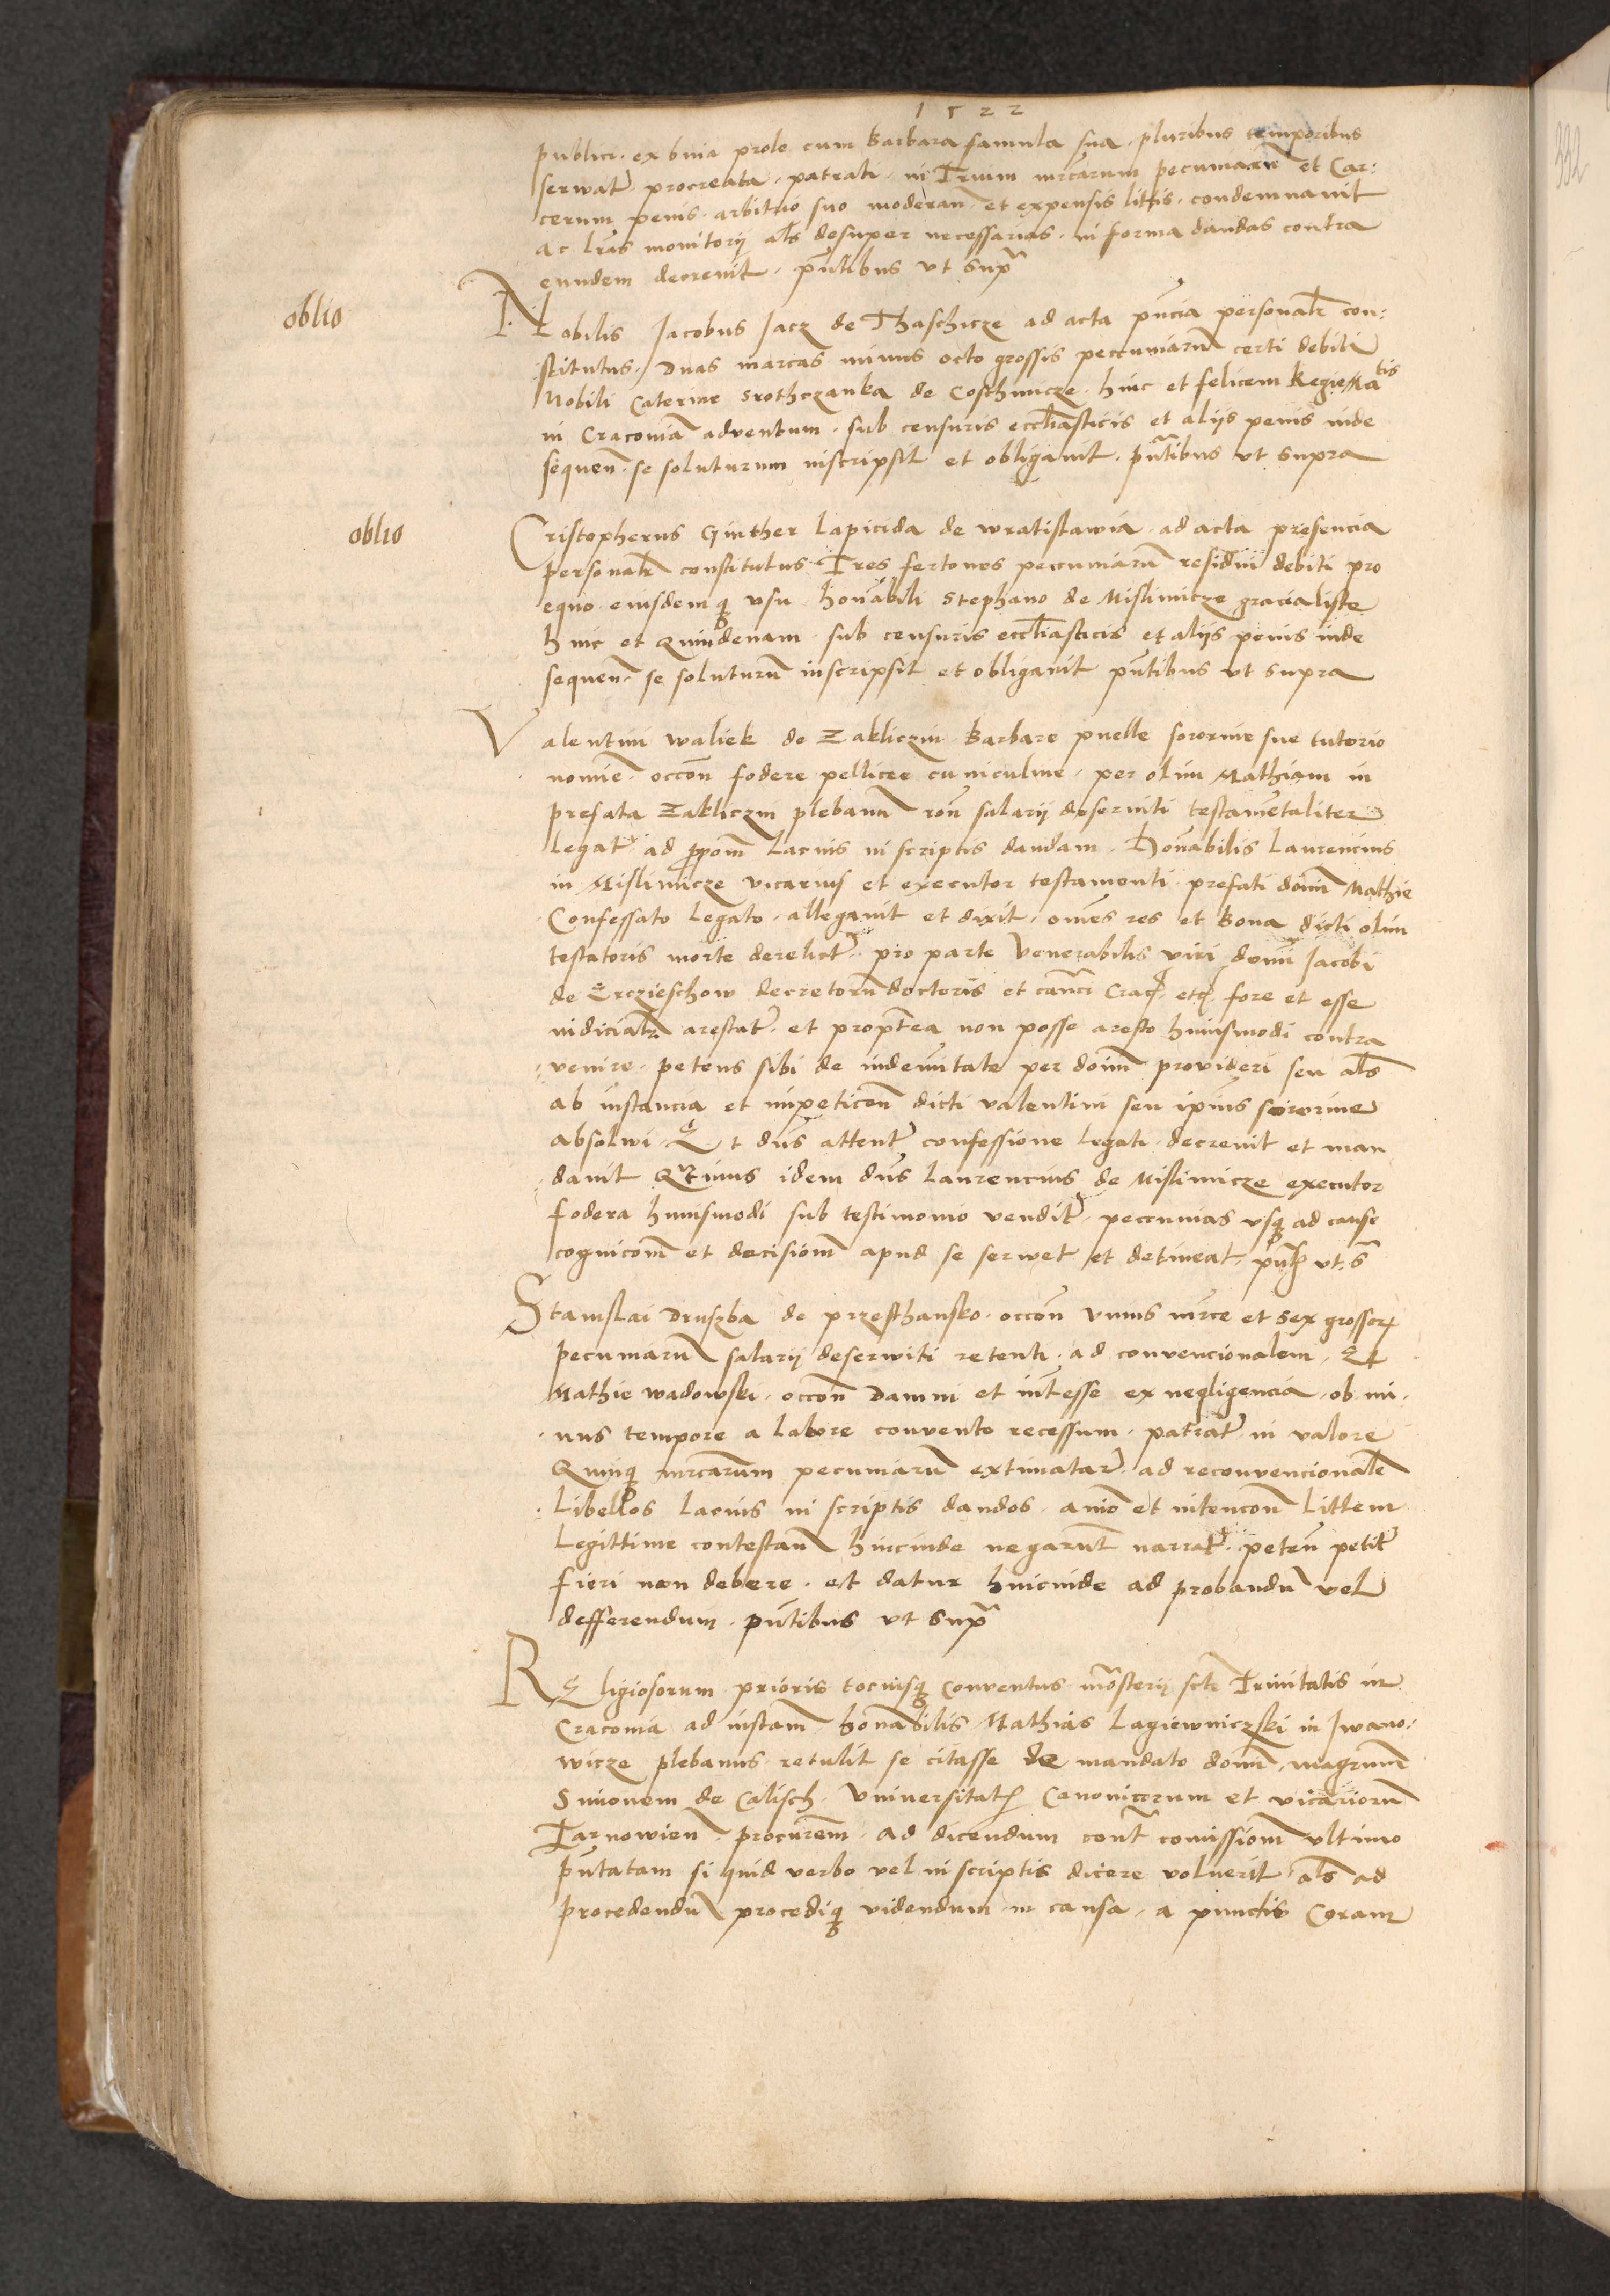 1522
publici ex bina prole cum Barbara famula sua pluribus temporibus
serwat procreata patrati in Trium mrcarum pecuniaru et Car:
cerum penis arbitrio suo moderan et expensis littis condemnavit
ac lras monitorij als desuper necessarias in forma dandas contra
eundem decrevit pntibus ut supra
oblio
Nobilis Jacobus Jacz de Thaschicze ad acta pncia personalr con:
stitutus Duas marcas minus octo grossis peccuniaru certi debiti
Nobili Caterine Srothczanka de Coschmicze hinc et felicem Regie Matis
in Cracovia adventum sub censuris eccliasticis et aliis penis inde
sequen se soluturum inscripsit et obligavit pntibus ut supra
oblio
Cristopherus Ginther lapicida de wratislawia ad acta presencia
personalr constitutus Tres fertones peccuniaru residui debiti pro
equo eiusdemq usu honabili Stephano de Mislimicze gracialiste
hinc et Quindenam sub censuris ecclasticis et aliis penis inde
sequen se soluturu inscripsit et obligavit pntibus ut supra
Valentini waliek de Zakliczin Barbare puelle sororine sue tutorio
nomie occon fodere pellicee cuniculine per olim Mathiam in
prefata Zakliczin plebanu ron salarij deserviti testamentaliter
Legat ad ppom Lacius in scriptis dandam Honabilis Laurencius
in Mislimicze vicarius et executor testamenti prefati domi Mathie
Confessato Legato allegavit et dixit omes res et bona dicti olim
testatoris morte derelict pro parte Venerabilis viri domi Jacobi
de Erczieschow decretoru doctoris et canci Crac etc fore et esse
iudicialr arestat et proptea non posse aresto huiusmodi contra
venire petens sibi de indemnitate per dom provideri seu als
ab instancia et impeticon dicti valentini seu ipius sororine
absolwi Et dns attent confessione legati decrevit et man
davit Qtinus idem dns Laurencius de Mislimicze executor
fodera huiusmodi sub testimonio vendit peccunias usq ad cause
cognicom et decisiom apud se serwet et detineat pntib ut s
Stanislai Druszba de przesthansko occon unius mrce et sex grossor
pecuniaru salarij deserwiti retenti ad convencionalem Et
Mathie wadowski occon Damni et intesse ex negligencia ob mi
nus tempore a labore convento recessum patrat in valore
Quinq mrcarum pecuniaru extimatar ad reconvencionale
Libellos Lacius in scriptis dandos anio et intencon Littem
Legittime contestan hincinde negarunt narrat peten petit
fieri non debere et datur hincinde ad probandu vel
defferendum pntibus ut supra
Religiosorum prioris tociusq Conventus mosterij scte Trinitatis in
Cracovia ad instam honabilis Mathias Lagiewniczski in Jwano:
wicze plebanus retulit se citasse de mandato domi magrum
Simonem de Calisch Universitat Canonicorum et vicarioru
Tarnowien procurem ad dicendum cont comissiom ultimo
pntatam si quid verbo vel in scriptis dicere voluerit als ad
procedendu procediq videndum in causa a punctis Coram
332